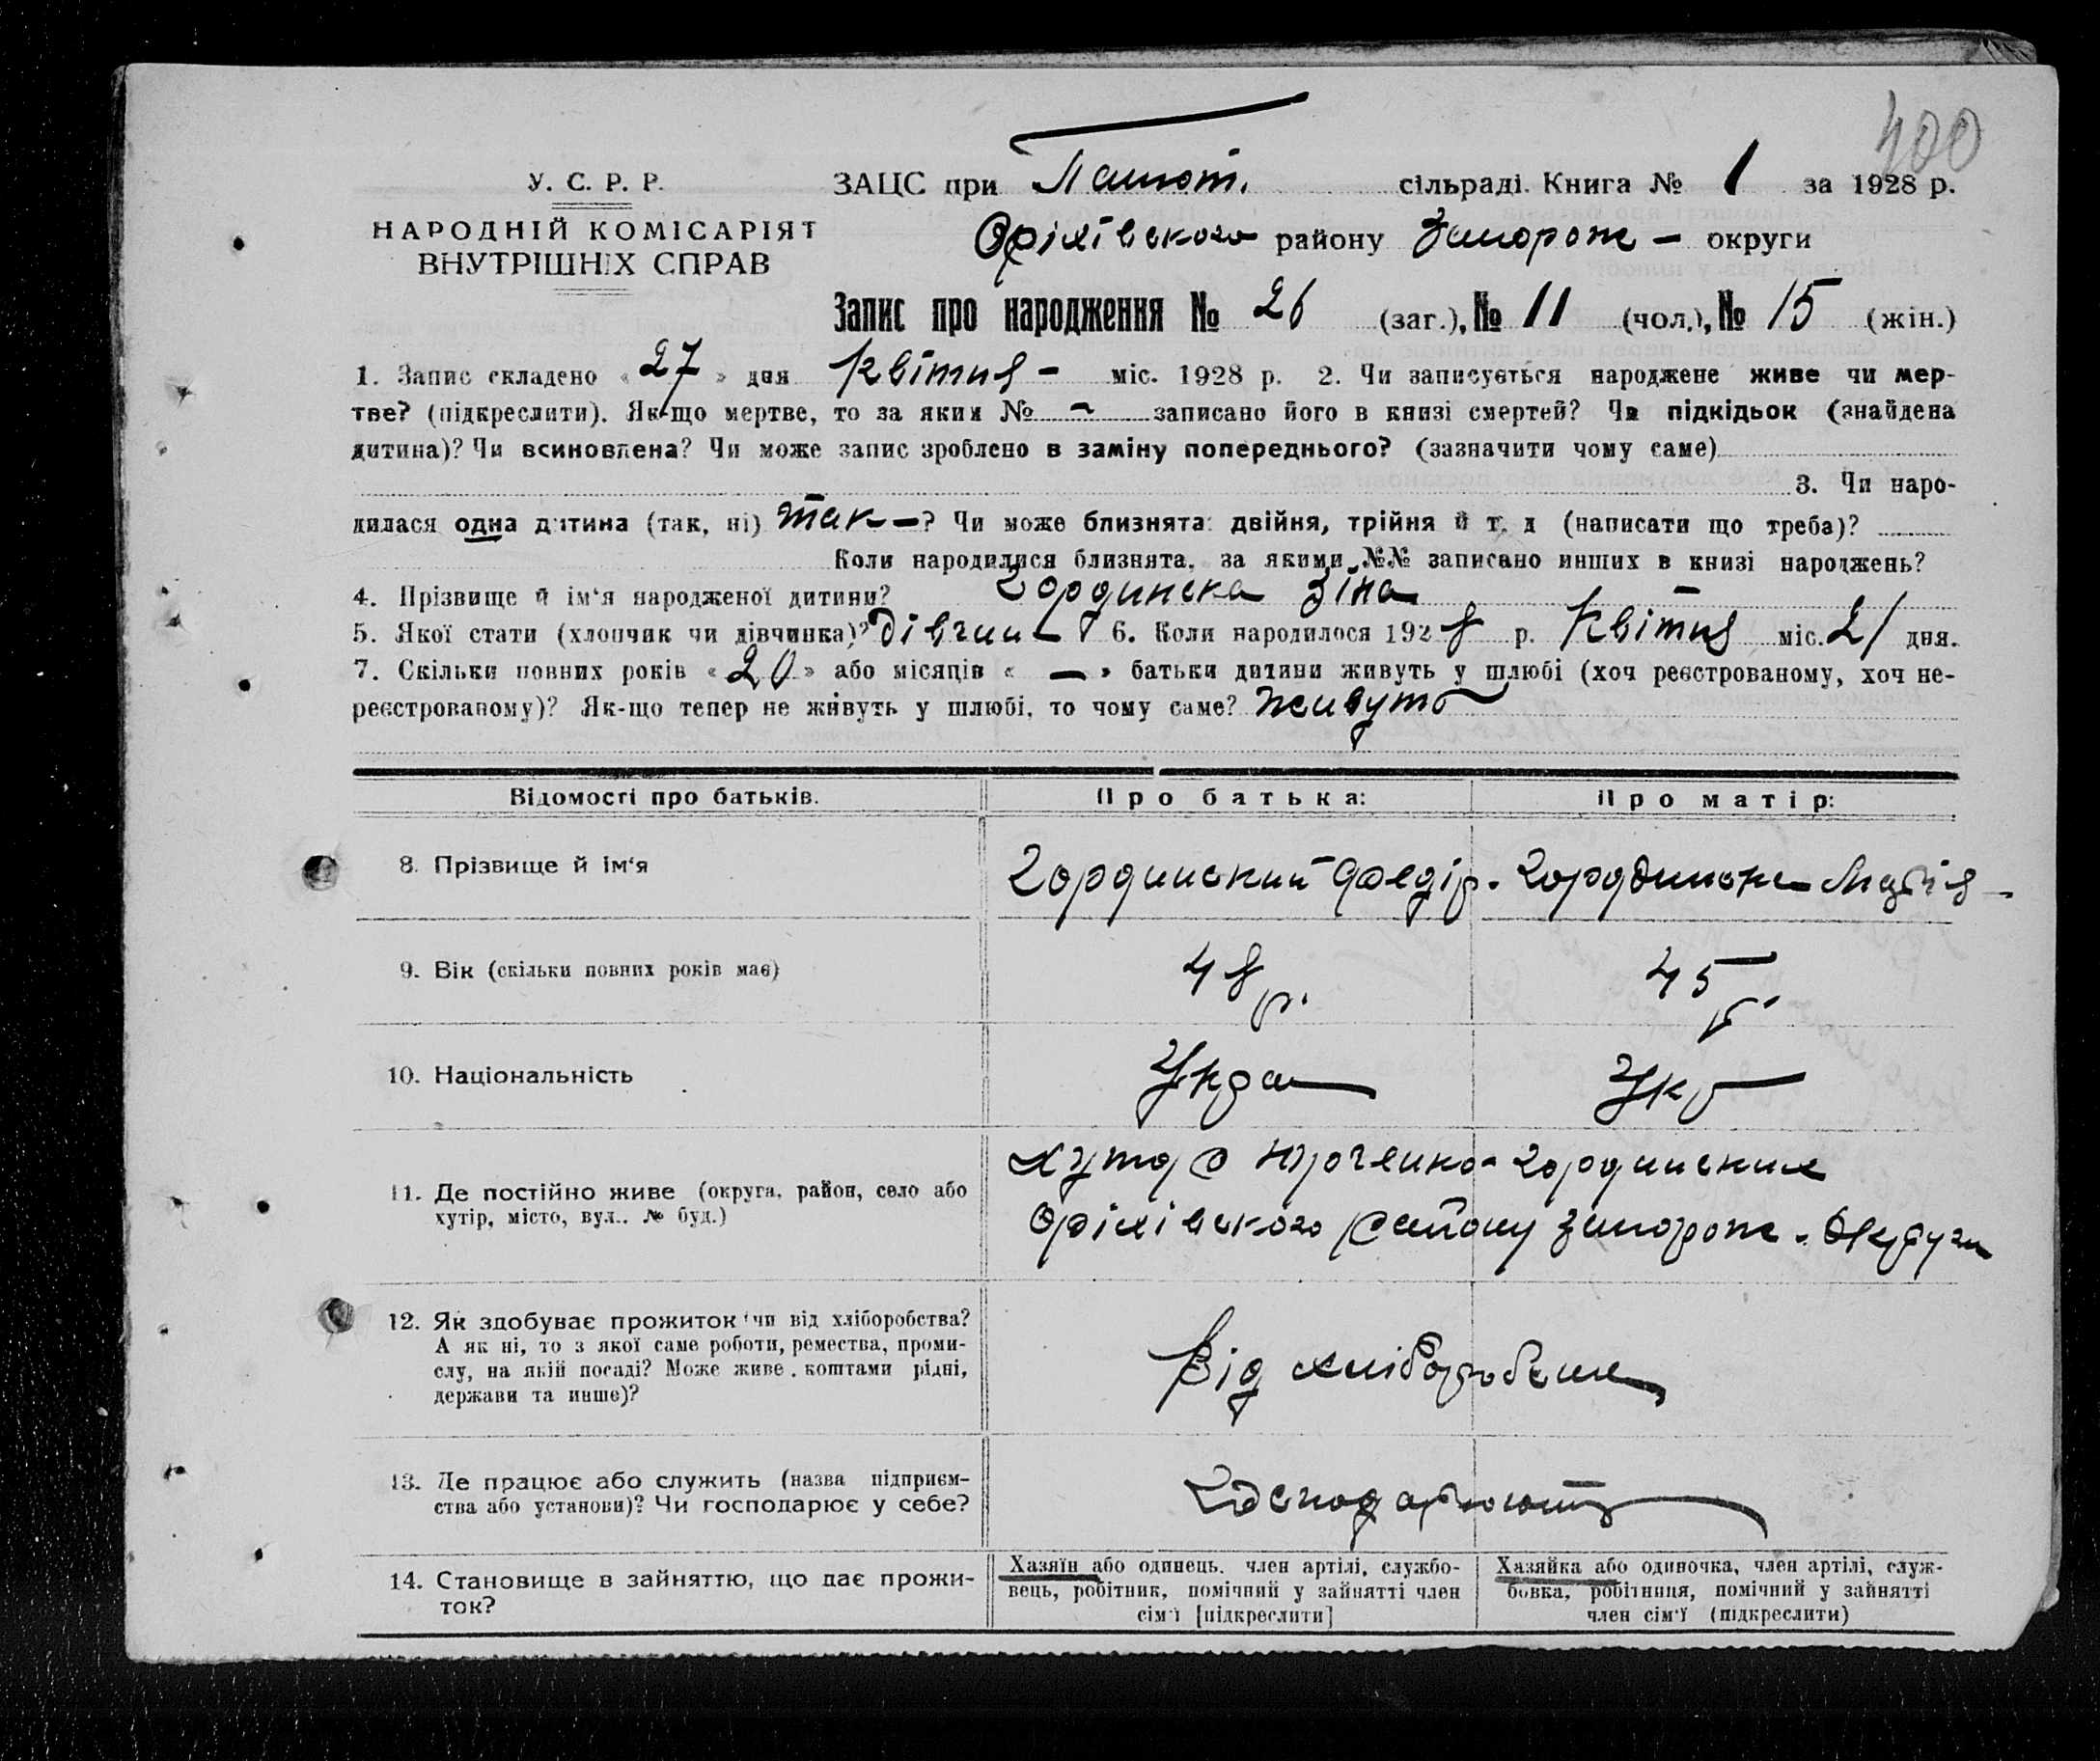 400
У. С. Р. Р.
НАРОДНІЙ КОМІСАРІЯТ
ВНУТРІШНІХ СПРАВ
ЗАЦС при сільраді. Книга № 1 за 1928 р.
Оріхівского району Запорож – округи
Запис про народження № 26 (заг.), № 11 (чол.), № 15 (жін.)
1. Запис складено « 27 » дня Квітня – міс. 1928 р. 2. Чи записується народжене живе чи мер-
тве? (підкреслити). Як-що мертве, то за яким № ~ записано його в книзі смертей? Чи підкідьок (знайдена
дитина)? Чи всиновлена? Чи може запис зроблено в заміну попереднього? (зазначити чому саме)
3. Чи наро-
дилася одна дитина (так, ні) так –? Чи може близнята: двійня, трійня й т. д (написати що треба)?
Коли народилися близнята, за якими №№ записано инших в книзі народжень?
4. Прізвище й ім‘я народженої дитини? Гординска Зіна
5. Якої стати (хлопчик чи дівчинка)? дівчин – 6. Коли народилося 1928 р. Квітня міс. 21 дня.
7. Скільки повних років « 20 » або місяців « — » батьки дитини живуть у шлюбі (хоч реєстрованому, хоч не-
реєстрованому)? Як-що тепер не живуть у шлюбі, то чому саме? живуть
Відомості про батьків. Про батька: Про матір:
8. Прізвище й ім‘я Гординский Федір. Гординска
9. Вік (скільки повних років має) 48 р. 45 р.
10. Національність Укра Укр
11. Де постійно живе (округа, район, село або
хутір, місто, вул.. № буд.)
хутор Юрченко-Гординских
Оріхівского району Запорож. Округи
12. Як здобуває прожиток чи від хліборобства?
А як ні, то з якої саме роботи, ремества, проми-
слу, на якій посаді? Може живе коштами рідні,
держави та инше)?
Від хліборобства
13. Де працює або служить (назва підприєм-
ства або установи)? Чи господарює у себе?
Господарюють
14. Становище в зайняттю, що дає прожи-
ток?
Хазяїн або одинець. член артілі, службо-
вець, робітник, помічний у зайнятті член
сім‘ї [підкреслити]
Хазяйка або одиночка, член артілі, служ-
бовка, робітниця, помічний у зайнятті
член сім‘ї (підкреслити)